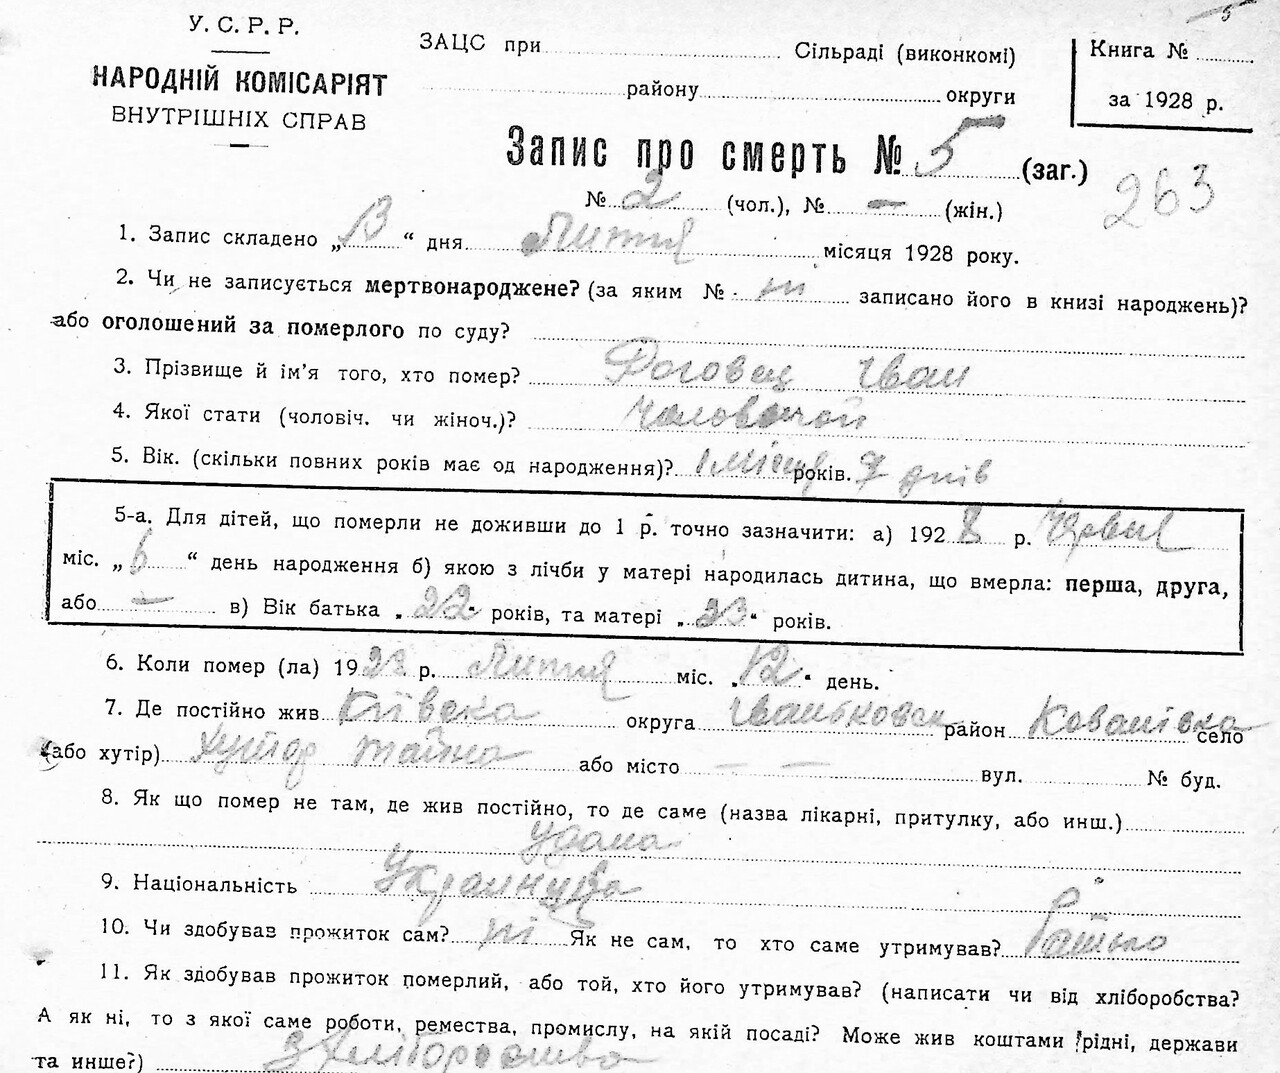 5
У. С. Р. Р.
НАРОДНІЙ КОМІСАРІЯТ
ВНУТРІШНІХ СПРАВ
ЗАЦС при Сільраді (виконкомі)
району округи
Книга №
за 1928 р.
Запис про смерть № 5 (заг.)
№ 2 (чол.), № — (жін.)
263
1. Запис складено „13“ дня Липня місяця 1928 року.
2. Чи не записується мертвонароджене? (за яким № ні записано його в книзі народжень)?
або оголошений за померлого по суду?
3. Прізвище й ім'я того, хто помер? Роговец Іван
4. Якої стати (чоловіч. чи жіноч.)? Чоловочой
5. Вік. (скільки повних років має од народження)? 1 місяц років. 7 днів
5-а. Для дітей, що померли не доживши до 1 р. точно зазначити: а) 1928 р. Червня
міс. „6“ день народження б) якою з лічби у матері народилась дитина, що вмерла: перша, друга,
або — в) Вік батька „22“ років, та матері „23“ років.
6. Коли помер (ла) 1928 р. Липня міс. „12“ день.
7. Де постійно жив Київска округа Іваньковск район Кованівка село
(або хутір) Хутор тайна або місто — — вул. № буд.
8. Як що помер не там, де жив постійно, то де саме (назва лікарні, притулку, або инш.)
удома
9. Національність
10. Чи здобував прожиток сам? ні Як не сам, то хто саме утримував? Батько
11. Як здобував прожиток померлий, або той, хто його утримував? (написати чи від хліборобства?
А як ні, то з якої саме роботи, ремества, промислу, на якій посаді? Може жив коштами рідні, держави
та инше?) з хлиборобства